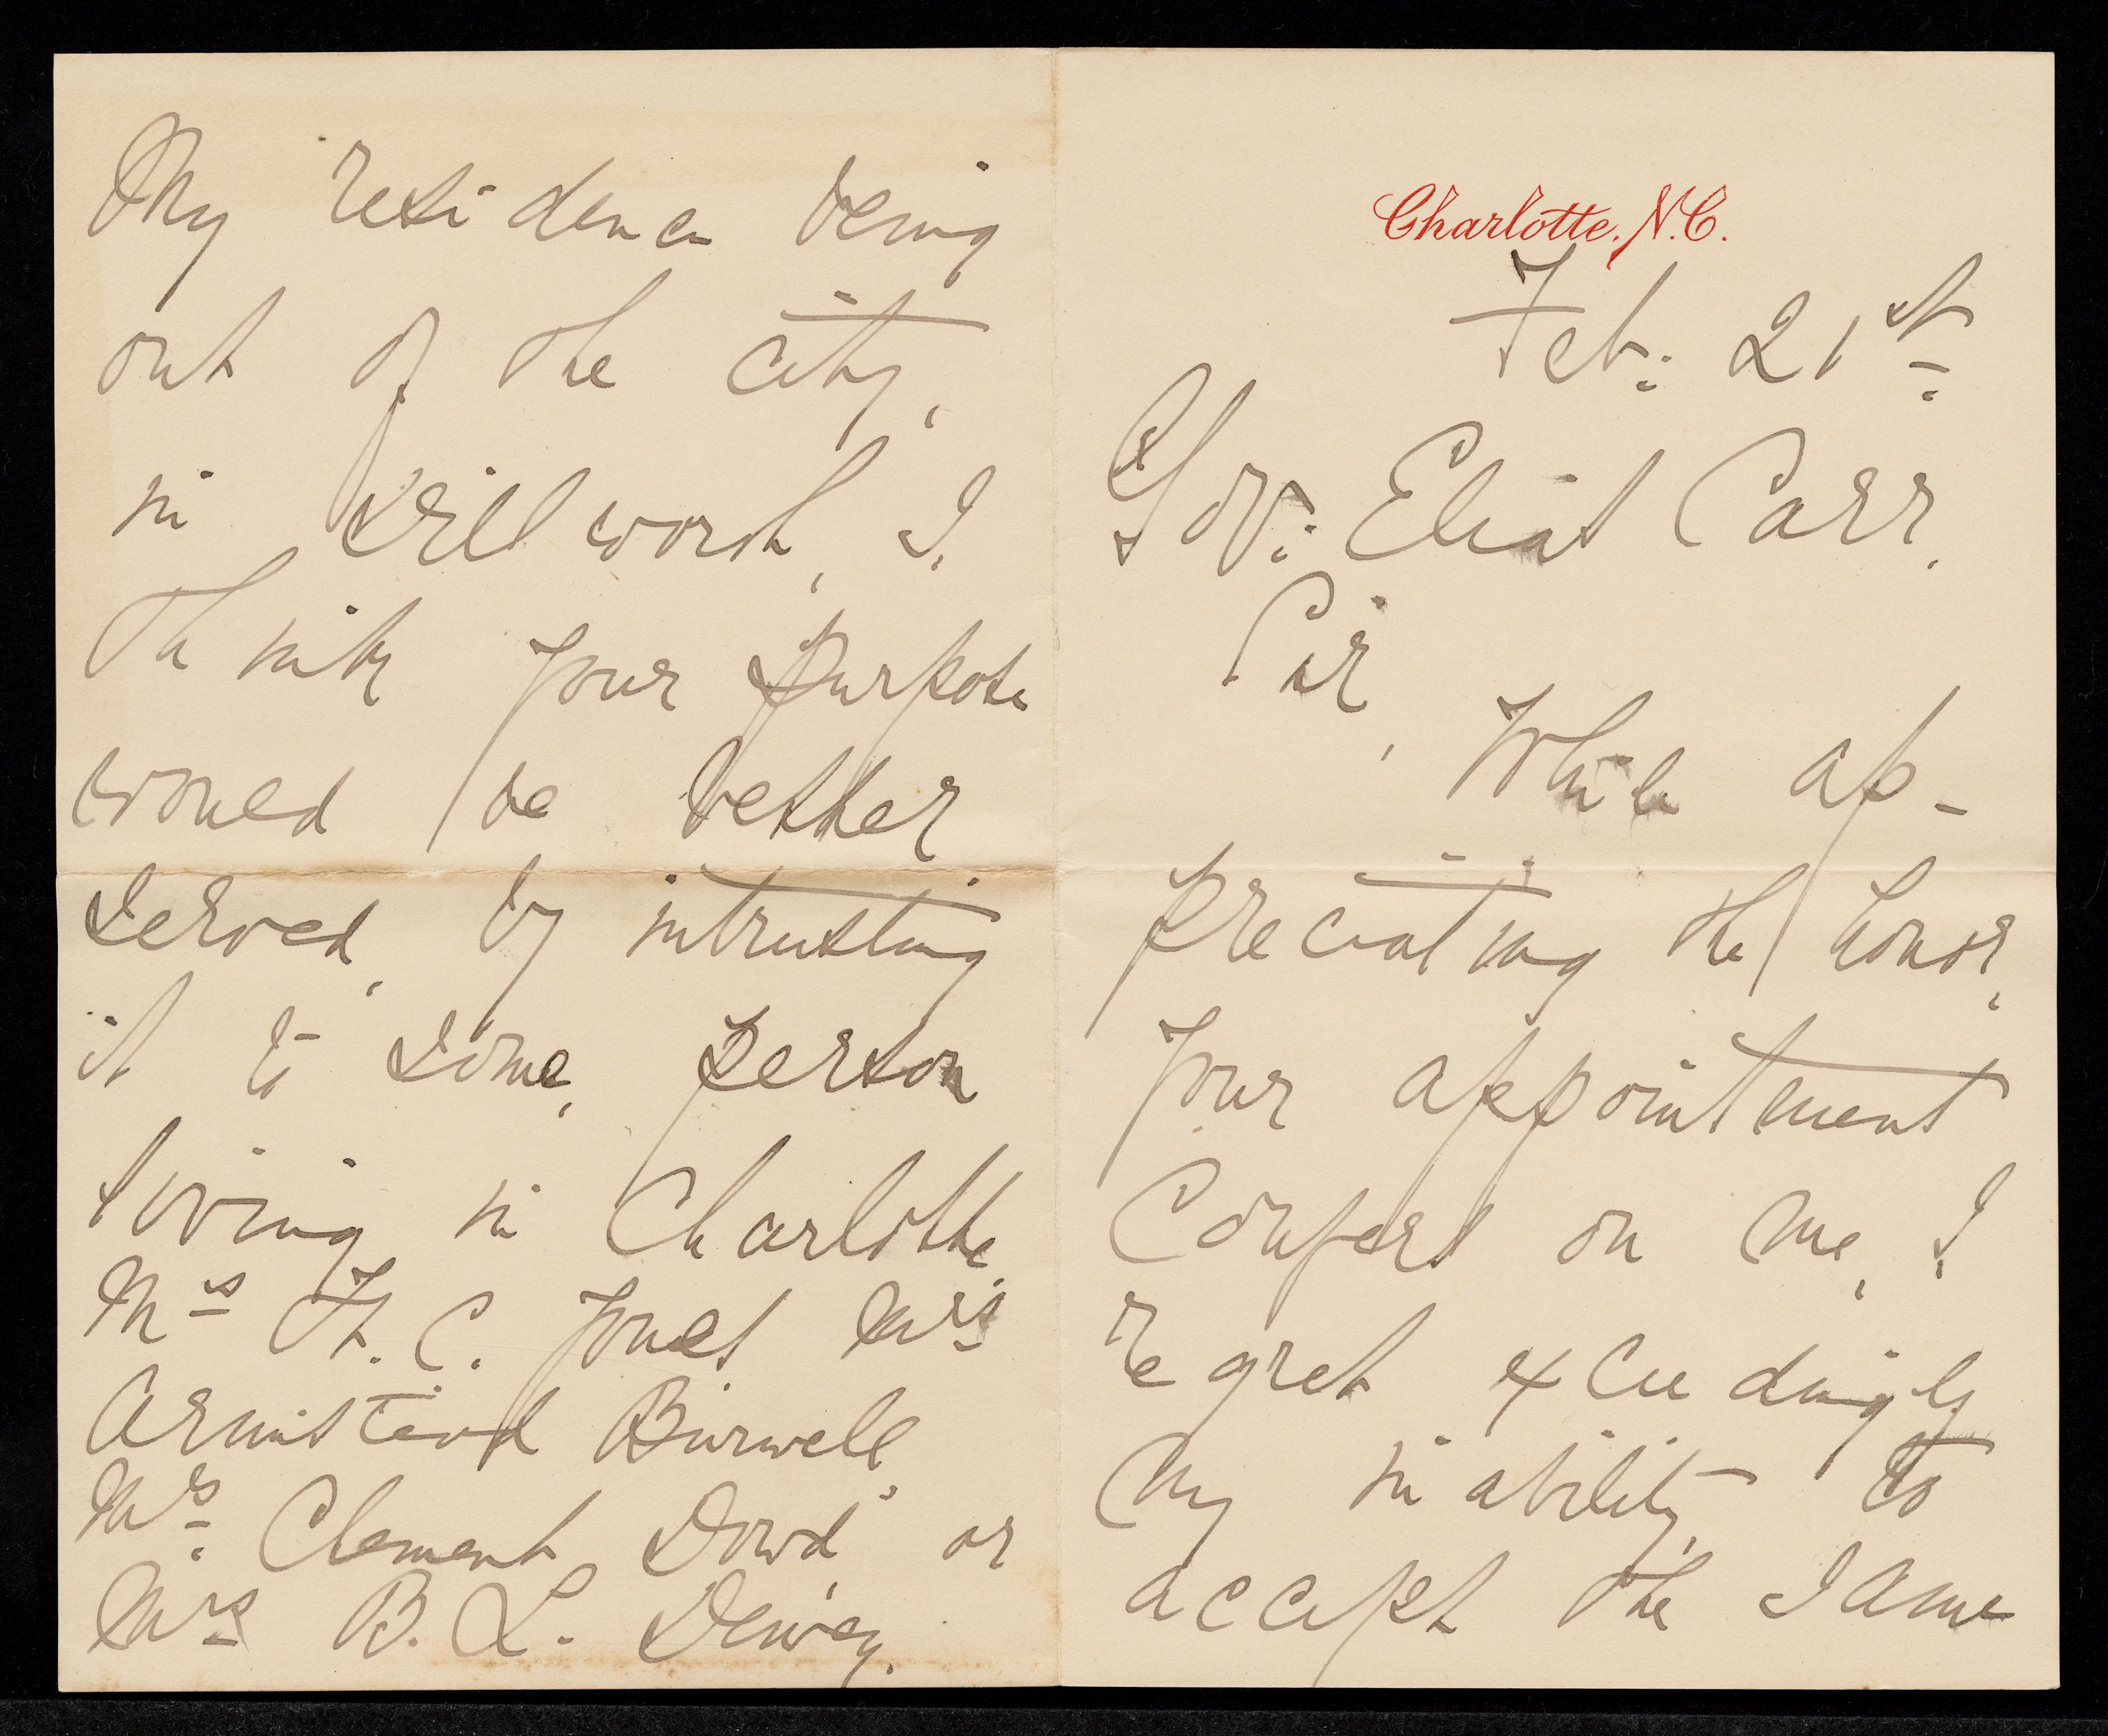 Charlotte, N.C.
Feb: 21st
Gov: Elias Carr.
Sir,
While ap-
preciating the honor,
your appointment
confers on me, I
regret exceedingly
my inability, to
accept the same
My residence being
out of the city,
in Dillworth, I
think your purpose
would be better
served, by intrusting
it to some, person
living in Charlotte,
Mrs H. C. Jones Mrs
Armistead Burwell
Mrs Clement Dowd, or
Mrs B. L. Dewey.